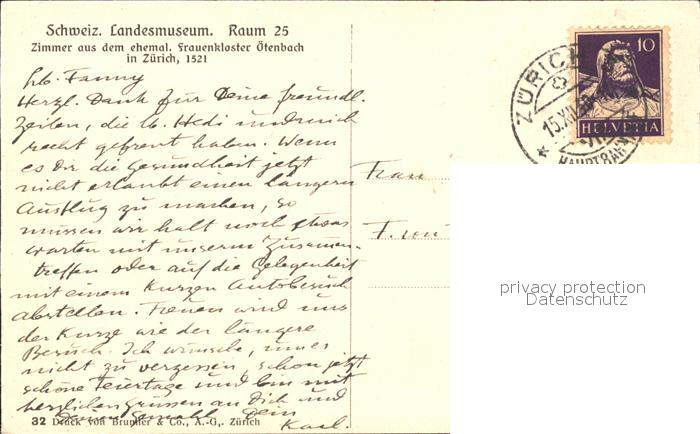 Schweiz. Landesmuseum. Raum 25
Zimmer aus dem ehemal. Frauenkloster Ötenbach
in Zürich, 1521
Lb. Fanny
Herzl. Dank für Deine freundl.
Zeilen, die lb. Hedi und mich
recht gefreut haben. Wenn
es Dir die Gesundheit jetzt
nicht erlaubt einen längern
Ausflug zu machen, so
müssen wir halt noch etwas
warten mit unserm Zusammen-
treffen oder auf die Gelegenheit
mit einem kurzen Autobesuch
abstellen. Freuen wird uns
der kurze wie der längere
Besuch. Ich wünsche, um es
nicht zu vergessen, schon jetzt
schöne Feiertage und bin mit
herzlichen Grüssen an Dich und
Deinen Gemahl Dein
Karl.
32 Druck von Brunner & Co., A.-G., Zürich
10
HELVETIA
ZÜRICH
15.XII
HAUPTBAHN
Frau
F. von
privacy protection
Datenschutz